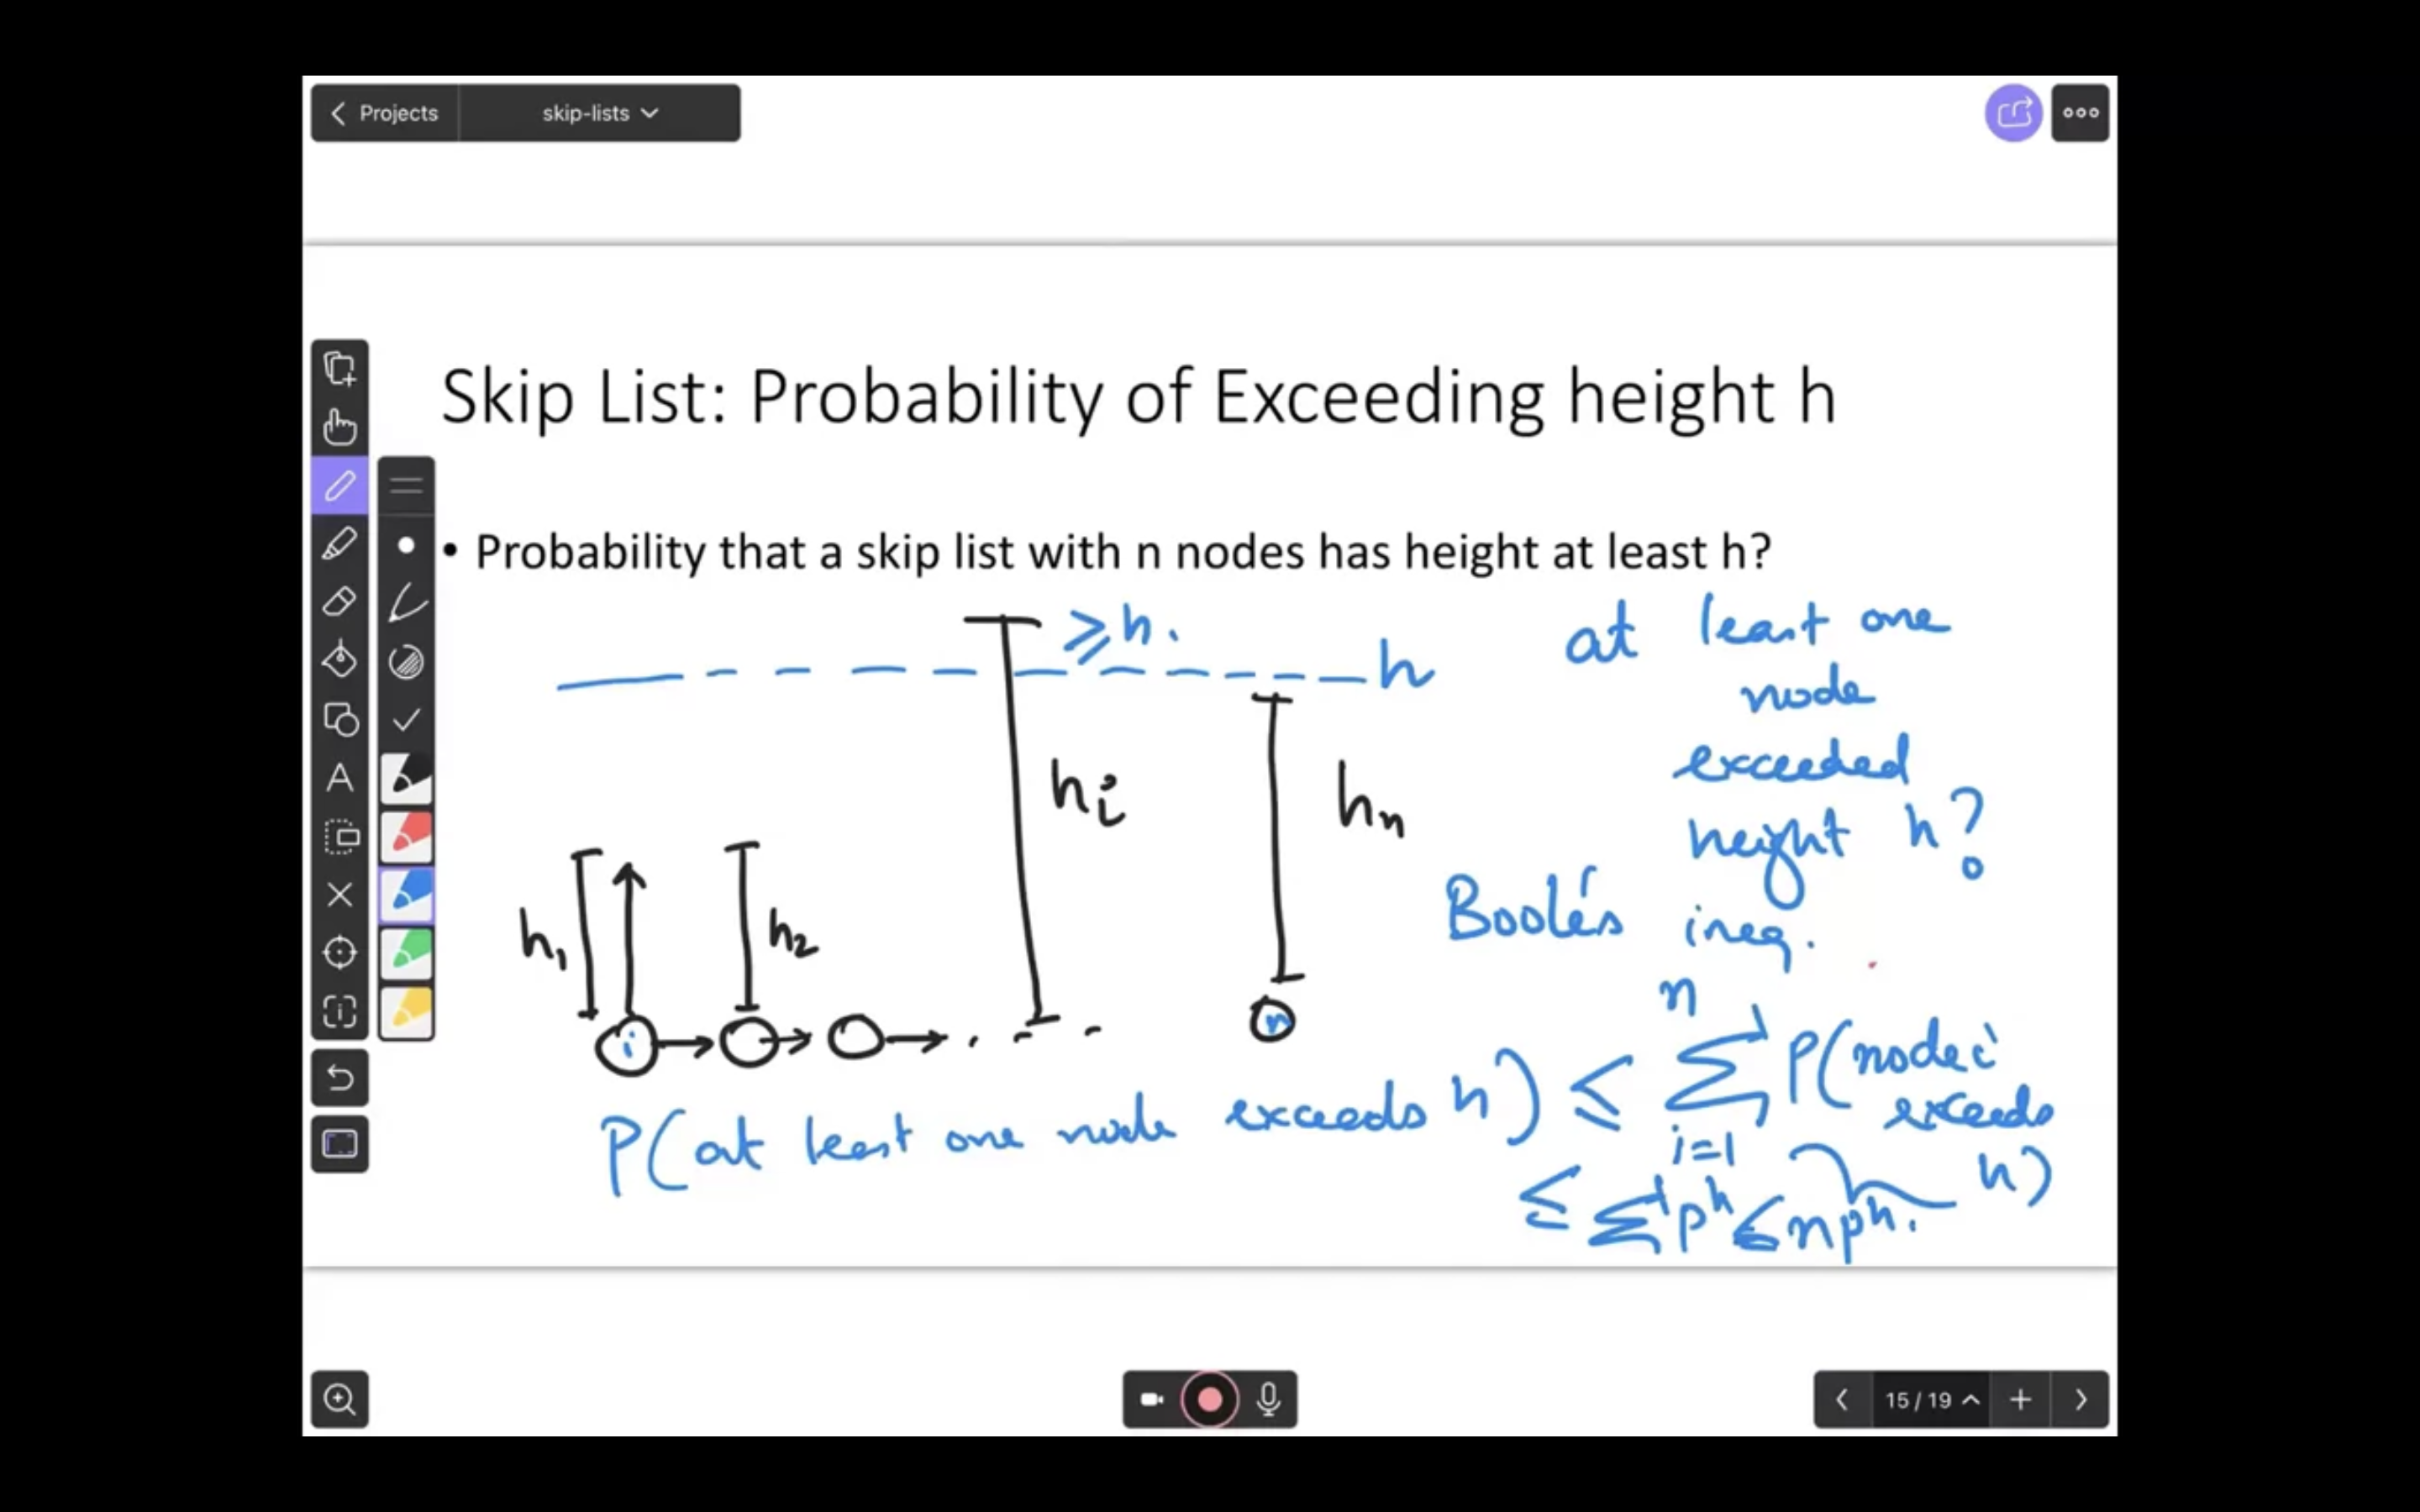 Projects
skip-lists
Skip List: Probability of Exceeding height h
• Probability that a skip list with n nodes has height at least h?
≥ h.
h
at least one
node
exceeded
height h?
Boole's ineq.
h₁
h₂
hᵢ
hₙ
i
n
P(at least one node exceeds h) ≤ n ∑ i=1 P(node i exceeds h)
≤ ∑ pʰ ≤ npʰ.
A
15 / 19